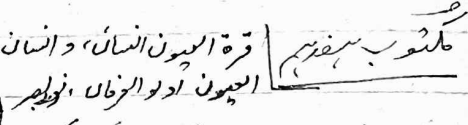 مکتوب ہفدہم
قرة العیون انسان، و انسان
العیون اولو العرفان،